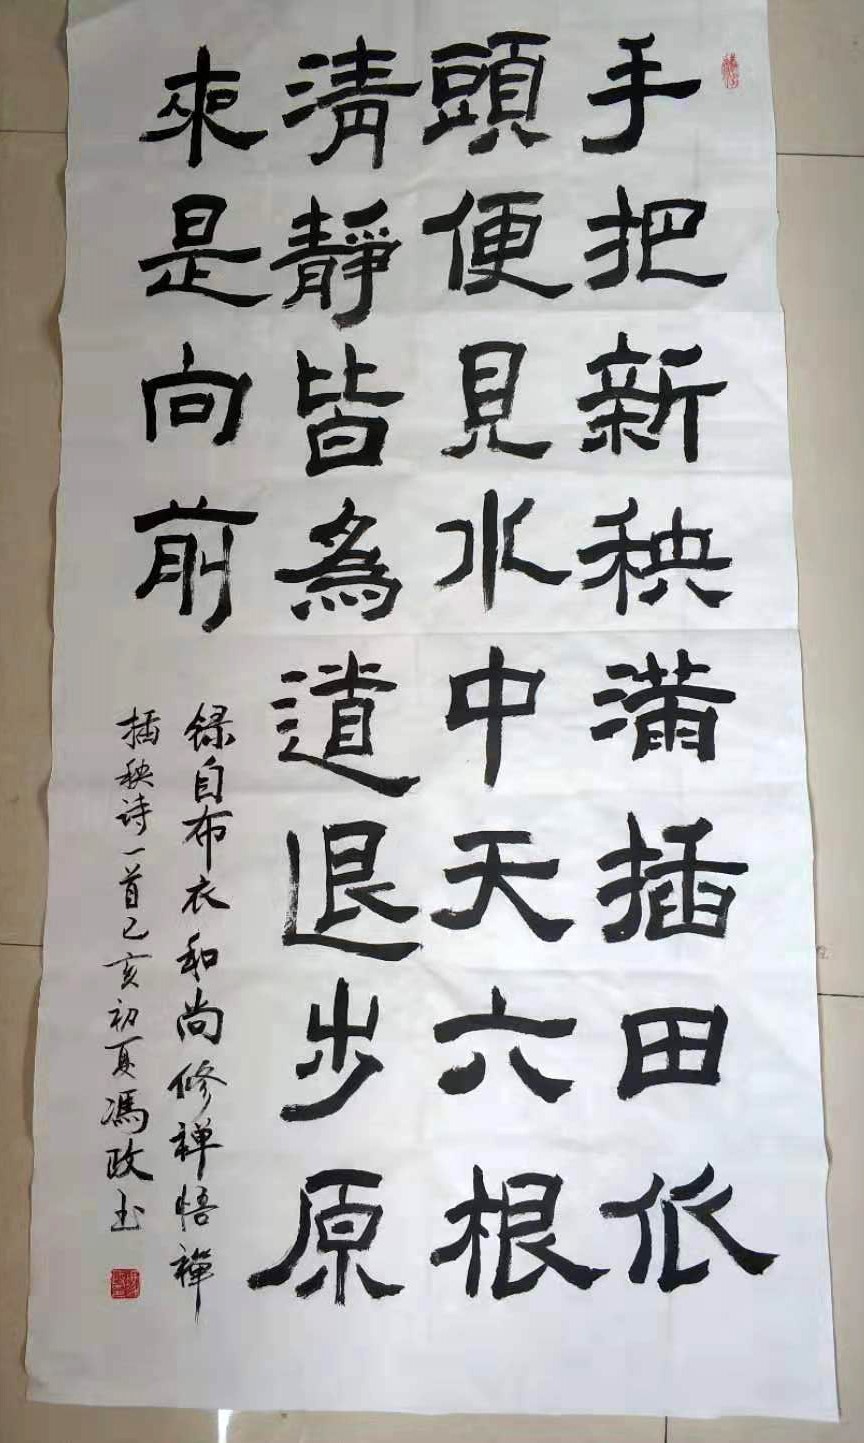 手把新秧滿插田低
頭便見水中天六根
清靜皆為道退步原
來是向前
録自布衣和尚修禅悟禪
插秧诗一首己亥初夏馮政玉